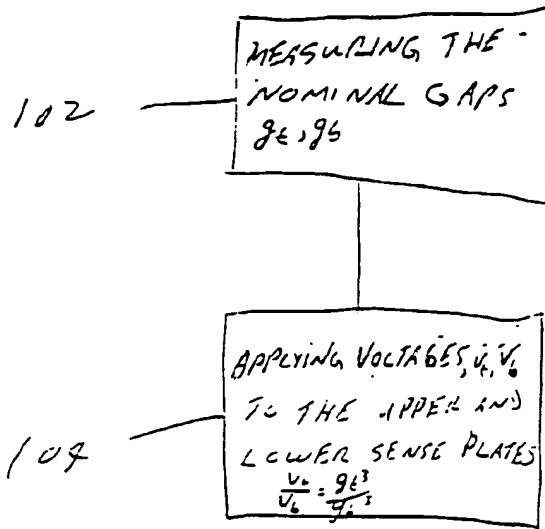 102
MEASURING THE
NOMINAL GAPS
gt, gb
104
APPLYING VOLTAGES, Vt, Vb
TO THE UPPER AND
LOWER SENSE PLATES
Vt/Vb = gt³/gb³